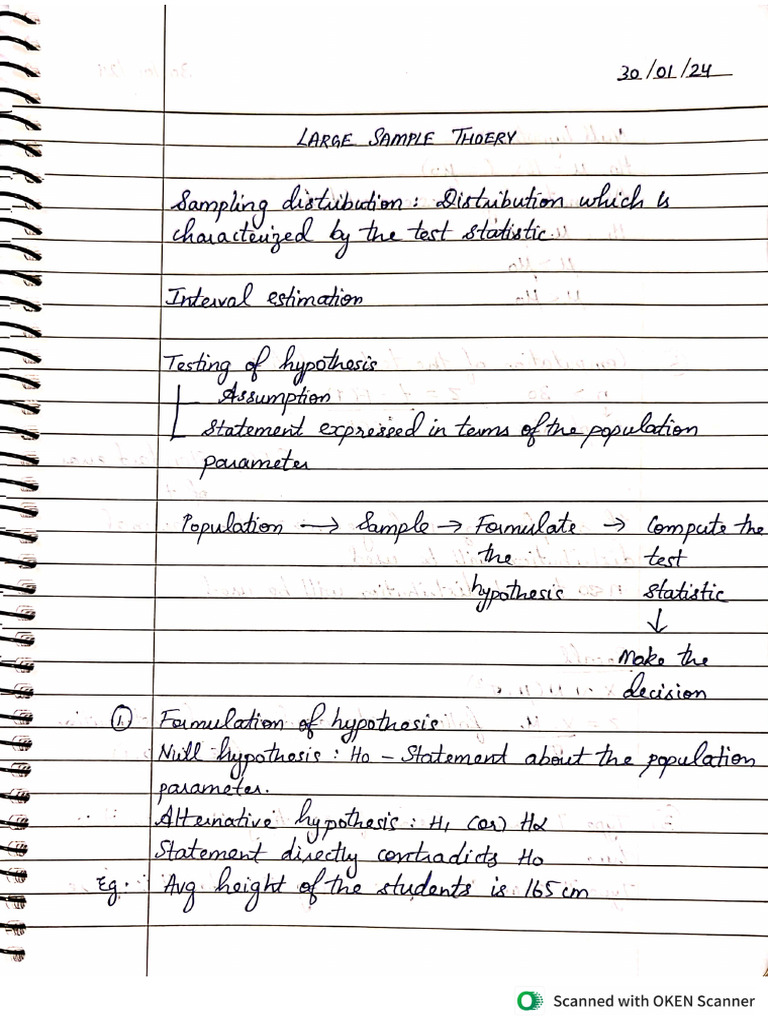 30/01/24
LARGE SAMPLE THOERY
Sampling distribution : Distribution which is
characterized by the test statistic.
Interval estimation
Testing of hypothesis
Assumption
Statement expressed in terms of the population
parameter
Population → Sample → Formulate → Compute the
the test
hypothesis statistic
↓
Make the
decision
① Formulation of hypothesis
Null hypothesis : H0 - Statement about the population
parameter.
Alternative hypothesis : H1 (or) Hα
Statement directly contradicts H0
Eg: Avg height of the students is 165 cm
Scanned with OKEN Scanner